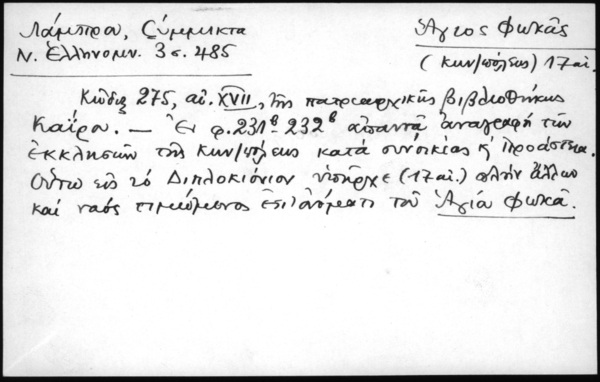 Λάμπρου, Σύμμικτα
Ν. Ἑλληνομν. 3 σ. 485
Ἅγιος Φωκᾶς
(Κων/πόλεως) 17 αἰ.
Κῶδιξ 275, αἰ. XVII, τῆς πατριαρχικῆς βιβλιοθήκης
Καΐρου. — Ἐν φ. 231β-232β ἀπαντᾶ ἀναγραφή τῶν
ἐκκλησιῶν τῆς Κων/πόλεως κατά συνοικίας κ' προάστεια.
Οὕτω εἰς τό Διπλοκιόνιον ὑπῆρχε (17 αἰ.) πλήν ἄλλων
καί ναός τιμώμενος ἐπ' ὀνόματι τοῦ Ἁγίου Φωκᾶ.